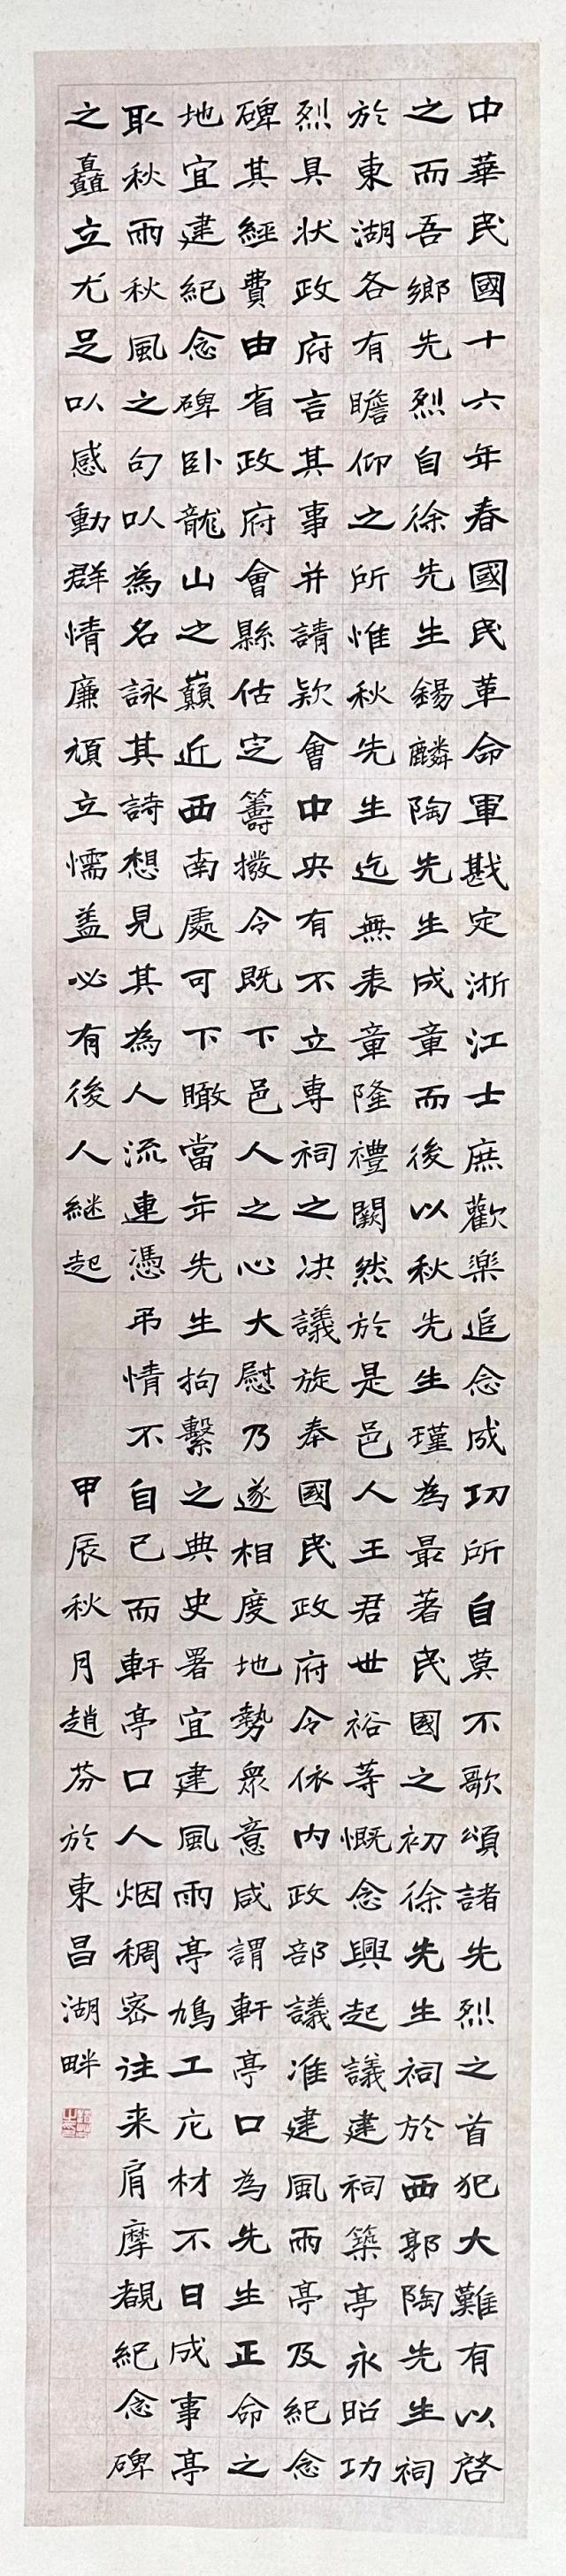 中華民國十六年春國民革命軍戡定浙江士庶歡樂追念成功所自莫不歌頌諸先烈之首犯大難有以啓
之而吾鄉先烈自徐先生錫麟陶先生成章而後以秋先生瑾為最著民國之初徐先生祠於西郭陶先生祠
於東湖各有瞻仰之所惟秋先生迄無表章隆禮闕然於是邑人王君世裕等慨念興起議建祠築亭永昭功
烈具狀政府言其事并請欵會中央有不立專祠之决議旋奉國民政府令依内政部議准建風雨亭及紀念
碑其經費由省政府會縣估定籌撥令既下邑人之心大慰乃遂相度地勢衆意咸謂軒亭口為先生正命之
地宜建紀念碑卧龍山之巔近西南處可下瞰當年先生拘繫之典史署宜建風雨亭鳩工庀材不日成事亭
取秋雨秋風之句以為名詠其詩想見其為人流連憑弔情不自已而軒亭口人烟稠密往来肩摩覩紀念碑
之矗立尤足以感動群情廉頑立懦盖必有後人継起 甲辰秋月趙芬於東昌湖畔